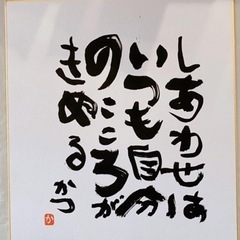 しあわせは
いつも自分
のこころが
きめる かつ
か